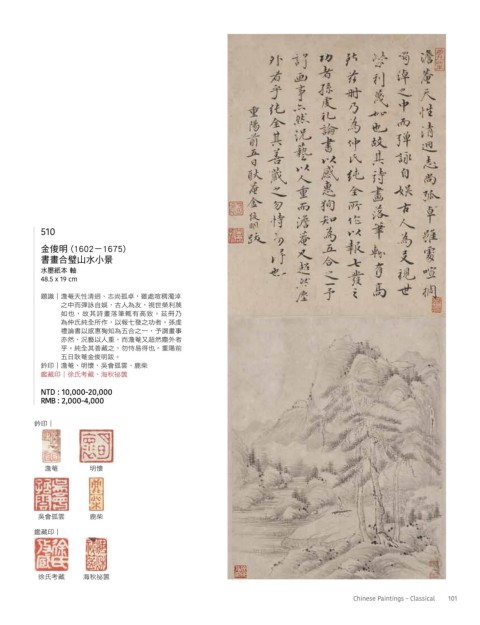 510
金俊明(1602－1675)
書畫合璧山水小景
水墨紙本 軸
48.5 x 19 cm
題識｜澹菴天性清迥、志尚孤卓，雖處喧稠濁淖
之中而彈詠自娛、古人為友，視世榮利蔑
如也，故其詩畫落筆輒有高致，茲冊乃
為仲氏純全所作，以報七發之功者，孫虔
禮論書以感惠徇知為五合之一，予謂畫事
亦然，況藝以人重，而澹菴又超然塵外者
乎，純全其善藏之，勿恃易得也。重陽前
五日耿菴金俊明跋。
鈐印｜澹菴、明懷、吳會孤雲、鹿柴
鑑藏印｜徐氏考藏、海秋祕匧
NTD : 10,000-20,000
RMB : 2,000-4,000
鈐印｜
澹菴
明懷
吳會孤雲
鹿柴
鑑藏印｜
徐氏考藏
海秋祕匧
澹菴天性清迥志尚孤卓雖處喧稠
濁淖之中而彈詠自娛古人為友視世
榮利蔑如也故其詩畫落筆輒有高
致茲冊乃為仲氏純全所作以報七發之
功者孫虔禮論書以感惠徇知為五合之一予
謂畫事亦然況藝以人重而澹菴又超然塵
外者乎純全其善藏之勿恃易得也
重陽前五日耿菴金俊明跋
Chinese Paintings – Classical 101